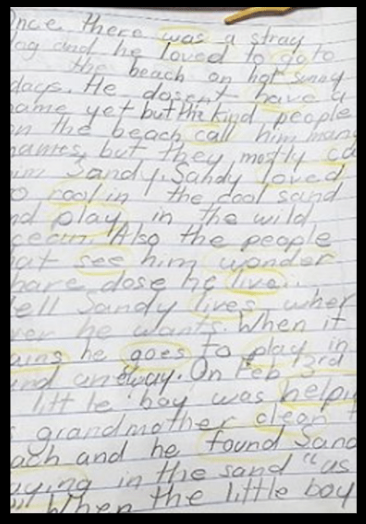 nce there was a stray
og and he loved to go to
the beach on hot sunny
days. He dosent have a
ame yet but the kind people
on the beach call him many
names, but they mostly ca
im Sandy. Sandy loved
o rool in the cool sand
nd play in the wild
ocean. Also the people
at see him wonder
hare dose he live..
ell Sandy lives wher
ver he wants. When it
ains he goes to play in
and aneway. On Feb 3rd
little boy was helpi
grandmother clean t
each and he found Sand
aying in the sand "as
When the little boy